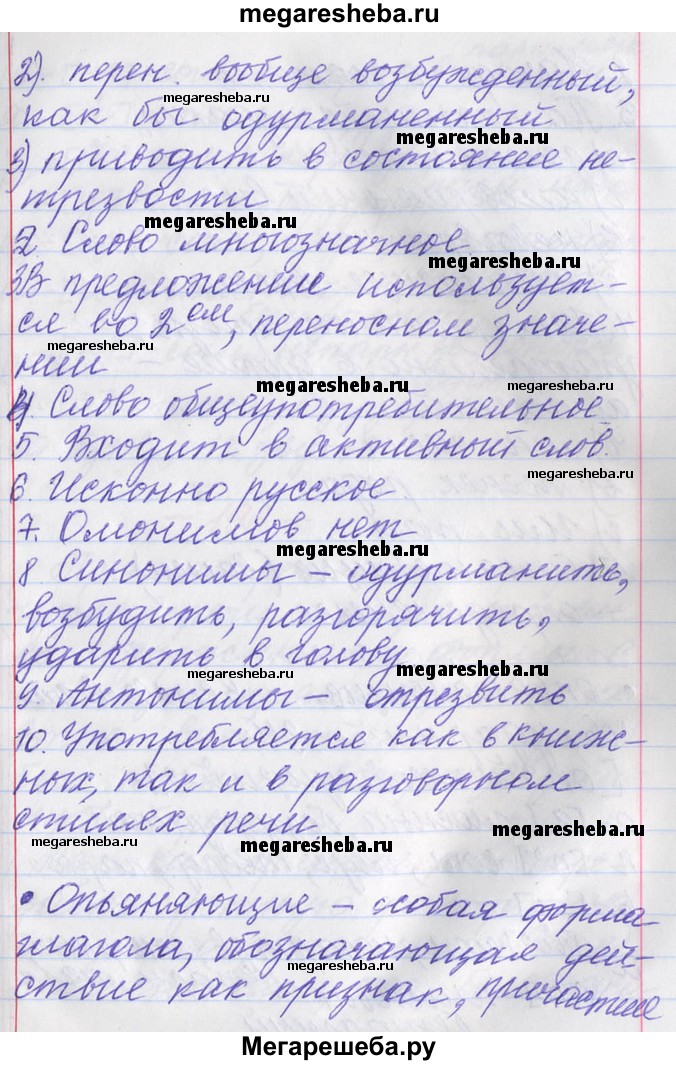 megaresheba.ru
2). перен. вообще возбужденный,
megaresheba.ru
как бы одурманенный
megaresheba.ru
3) приводить в состояние не-
трезвости
megaresheba.ru
2. Слово многозначное
megaresheba.ru
3. В предложение использует-
ся во 2ом, переносном значе-
megaresheba.ru
нии
megaresheba.ru
megaresheba.ru
4. Слово общеупотребительное
5. Входит в активный слов.
megaresheba.ru
6. Исконно русское.
7. Омонимов нет
megaresheba.ru
8 Синонимы – одурманить,
возбудить, разгорячить,
ударить в голову
megaresheba.ru
megaresheba.ru
9. Антонимы – отрезвить
10. Употребляется как в книж-
ных, так и в разговорном
стилях речи
megaresheba.ru
megaresheba.ru
megaresheba.ru
• Опьяняющие – особая форма
глагола, обозначающая дей-
megaresheba.ru
ствие как признак, причастие
Мегарешеба.ру